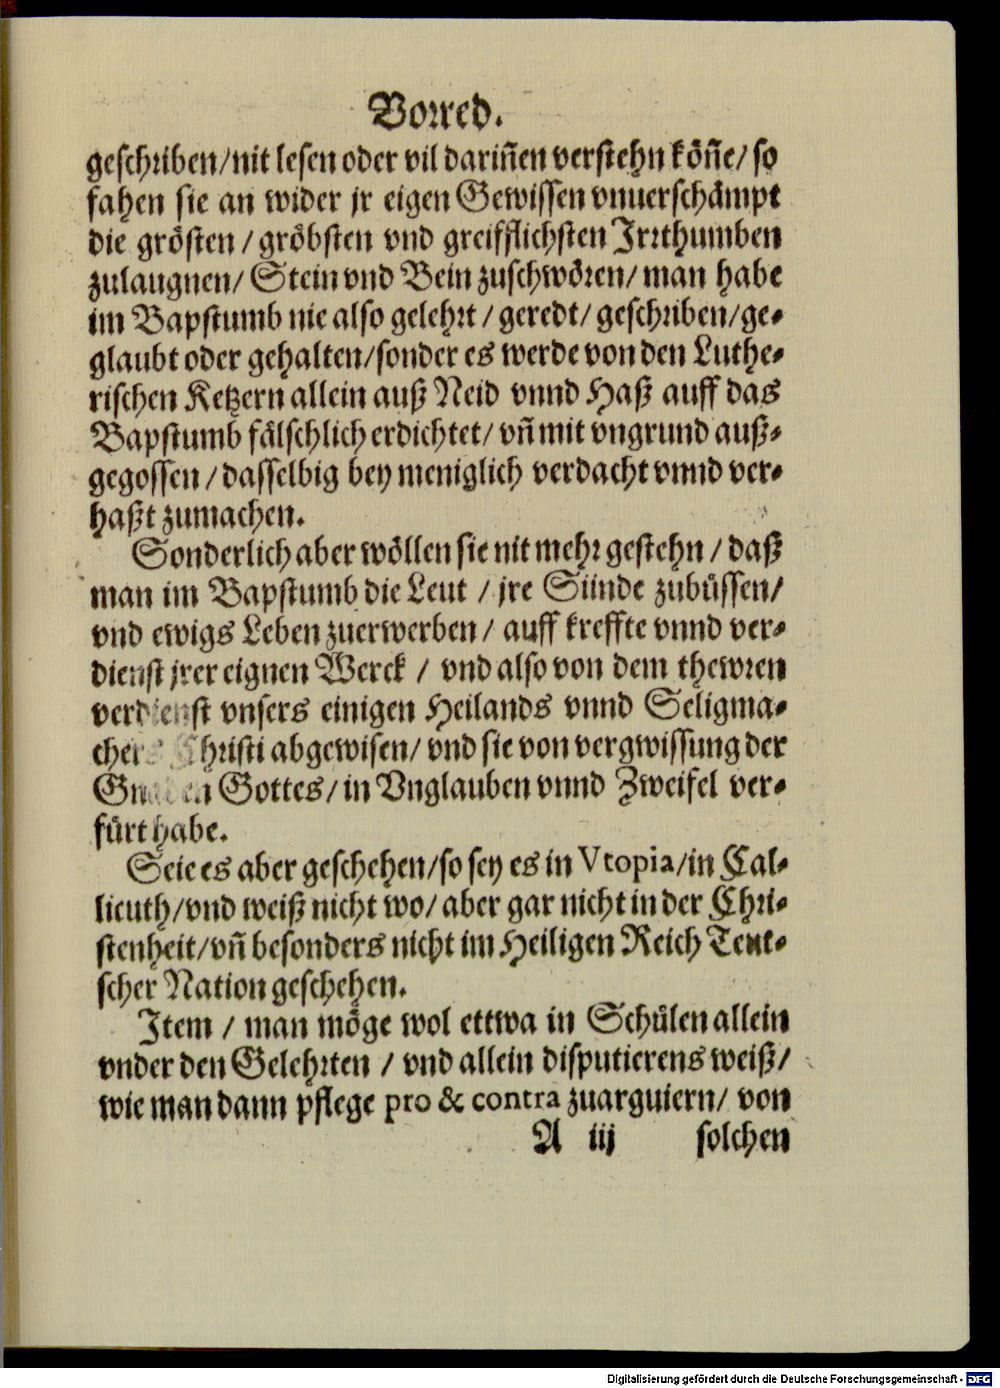 Vorred.
geschriben/nit lesen oder vil dariñen verstehn köñe/ so
fahen sie an wider jr eigen Gewissen vnuerschämpt
die grösten / gröbsten vnd greifflichsten Irrthumben
zulaugnen/ Stein vnd Bein zuschwören/ man habe
im Bapstumb nie also gelehrt / geredt/ geschriben/ge-
glaubt oder gehalten/sonder es werde von den Luthe-
rischen Ketzern allein auß Neid vnnd Haß auff das
Bapstumb fälschlich erdichtet/ vñ mit vngrund auß-
gegossen / dasselbig bey meniglich verdacht vnnd ver-
haßt zumachen.
Sonderlich aber wöllen sie nit mehr gestehn / daß
man im Bapstumb die Leut / jre Sünde zubüssen/
vnd ewigs Leben zuerwerben / auff kreffte vnnd ver-
dienst jrer eignen Werck / vnd also von dem thewren
verdienst vnsers einigen Heilands vnnd Seligma-
chers Christi abgewisen/ vnd sie von vergwissung der
Gnaden Gottes/ in Vnglauben vnnd Zweifel ver-
fürt habe.
Seie es aber geschehen/so sey es in Vtopia/in Cal-
licuth/vnd weiß nicht wo/ aber gar nicht in der Chri-
stenheit/vñ besonders nicht im Heiligen Reich Teut-
scher Nation geschehen.
Item / man möge wol ettwa in Schülen allein
vnder den Gelehrten / vnd allein disputierens weiß/
wie man dann pflege pro & contra zuarguiern/ von
A iij solchen
Digitalisierung gefördert durch die Deutsche Forschungsgemeinschaft - DFG